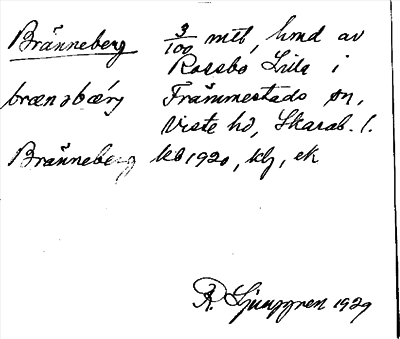 Bränneberg 3/100 mtl, hmd av
Rossbo Lilla i
brænəbærj Främmestads sn,
Viste hd, Skarab. l.
Bränneberg kb 1920, klj, ek
R. Ljunggren 1929